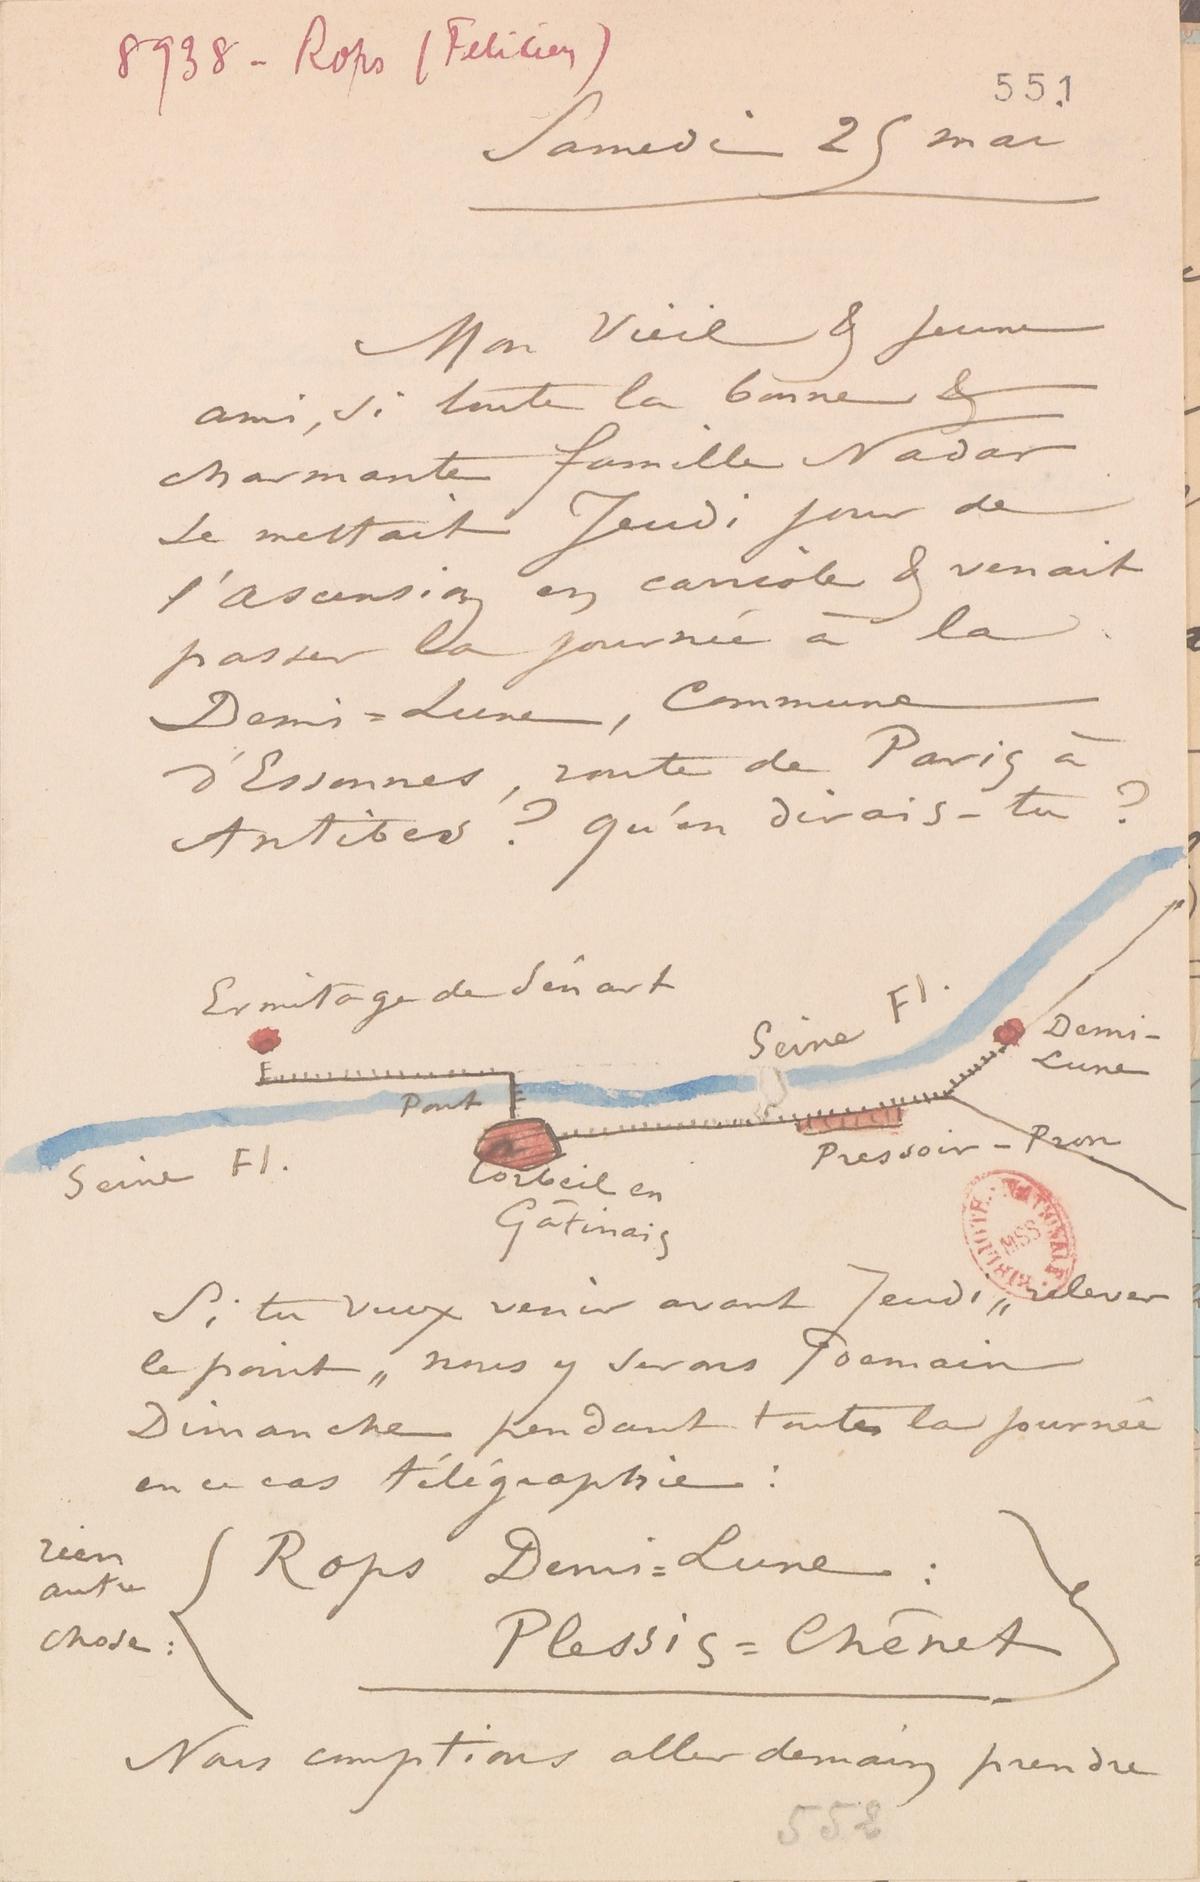 8938 - Rops (Félicien)
551
Samedi 25 mai
Mon Vieil & jeune
ami, si toute la bonne &
charmante famille Nadar
se mettait Jeudi jour de
l'ascension en carriole & venait
passer la journée à la
Demi=Lune, Commune
d'Essonnes, route de Paris à
Antibes ? qu'en dirais-tu ?
Ermitage de Sénart
Seine Fl.
Demi-
Lune
Pont
Pressoir-Pron
Seine Fl.
Corbeil en
Gâtinais
BIBLIOTH. NATIONALE MSS
Si tu veux venir avant Jeudi „relever
le point„ nous y serons demain
Dimanche pendant toute la journée
en ce cas télégraphie :
rien
autre
chose :
Rops Demi=Lune :
Plessis=Chênet
Nous comptions aller demain prendre
552